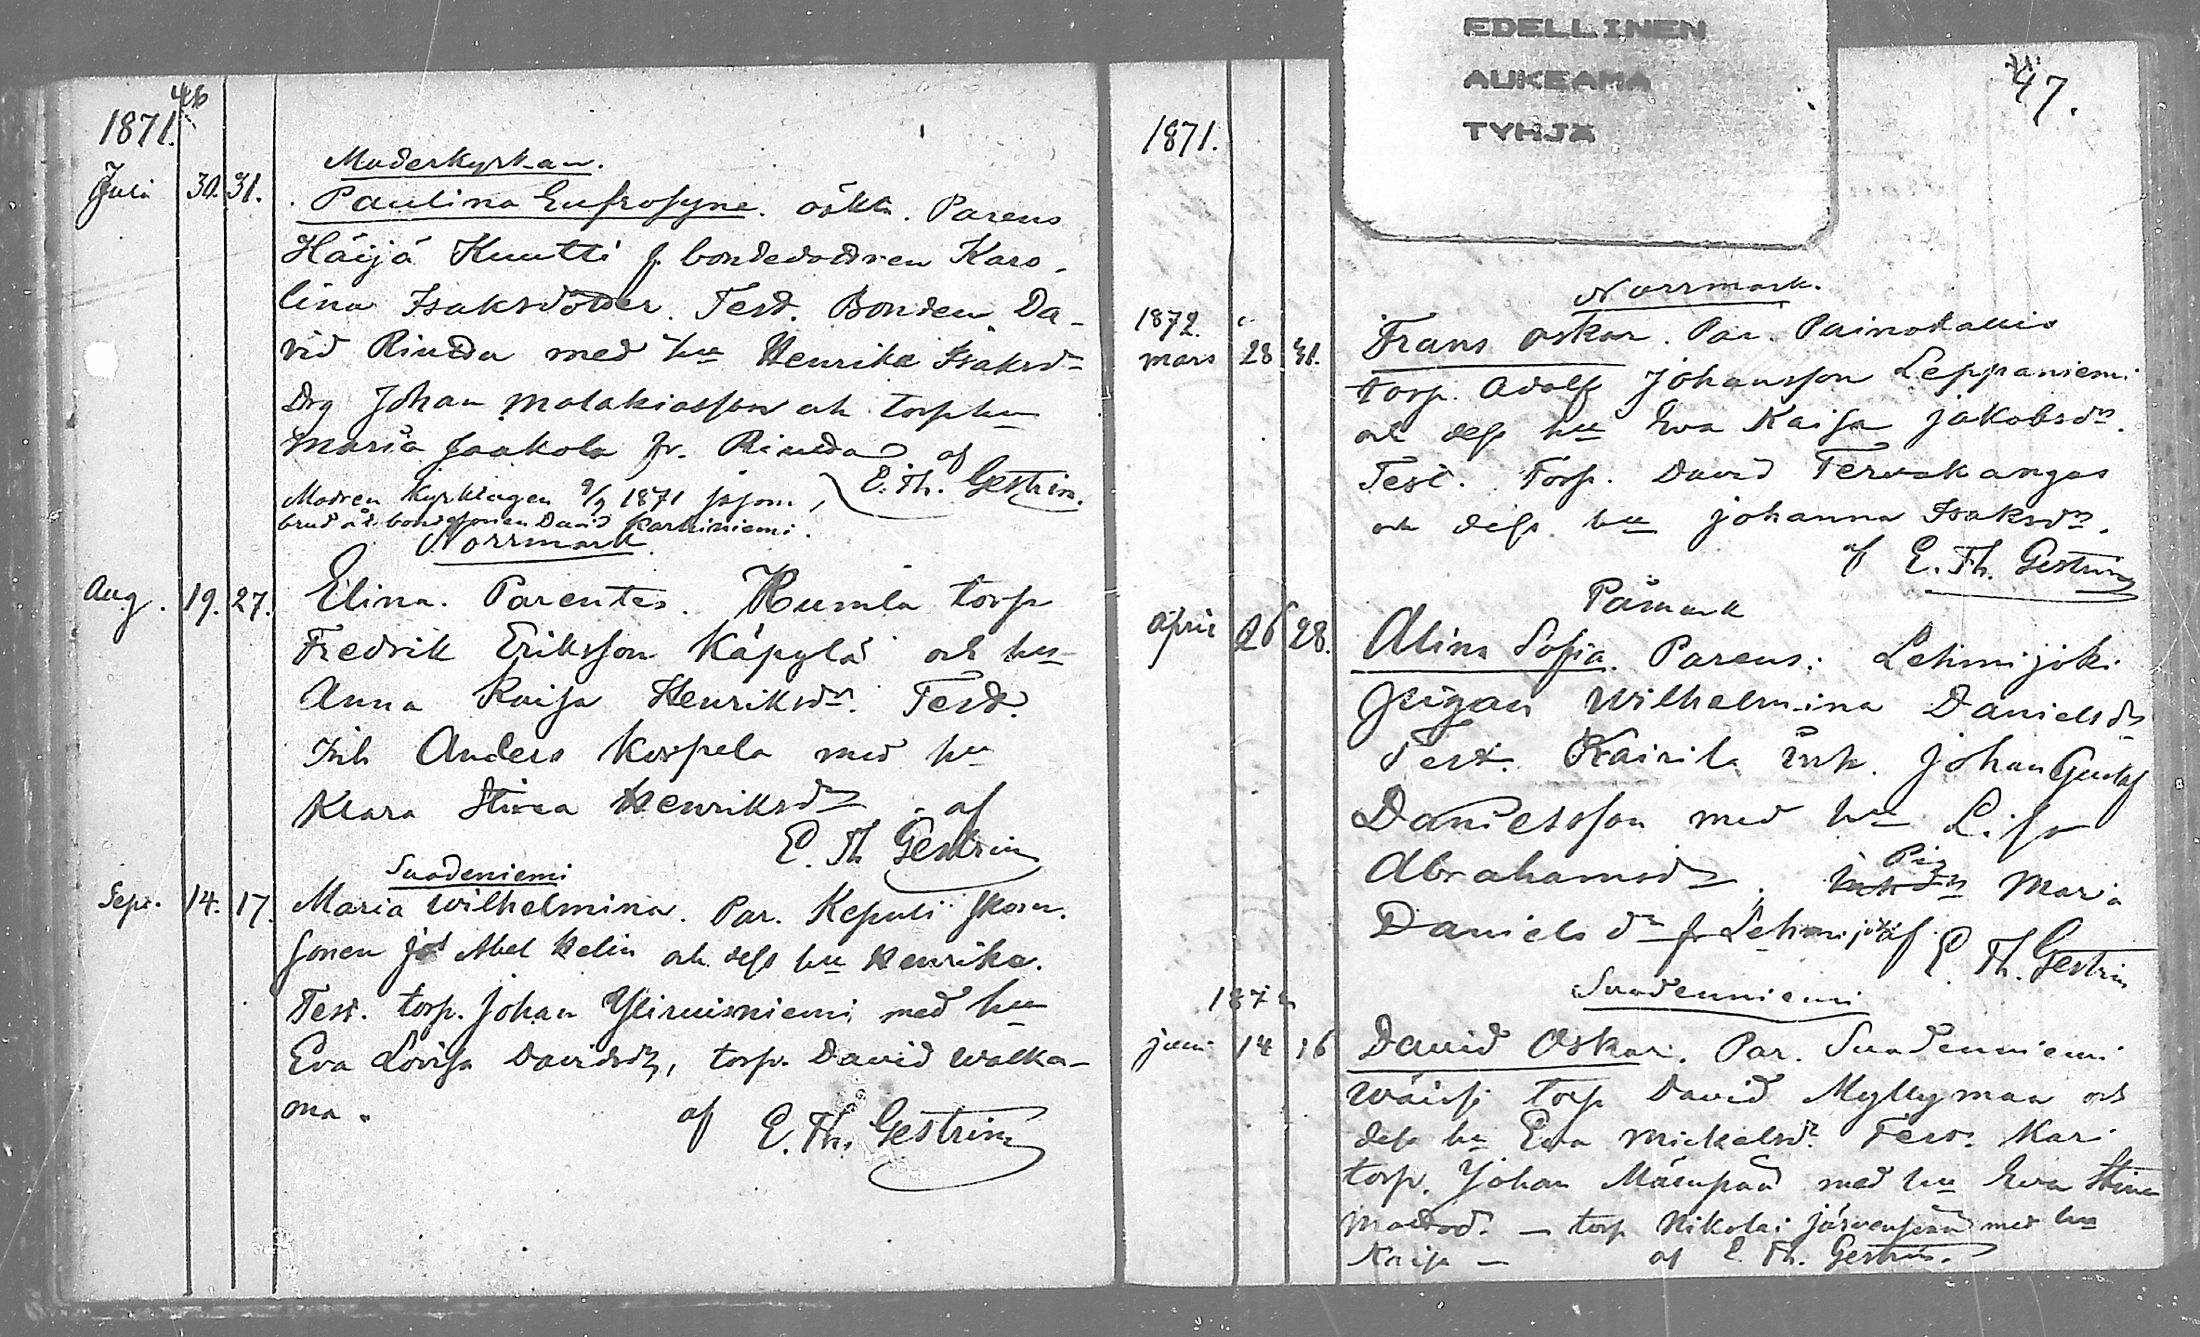 46
1871.
Moderkyrkan.
Juli 30. 31. Paulina Eufrosyne. oäkta. Parens
Häijä Kuutti f. bondedottren Karo-
lina Isaksdotter. Test. Bonden Da-
vid Rindu med hu Henrika Isaksd
Drg Johan Malakiasson och torp hu
Maria Jaakola fr. Rinda af
E. Th. Gestrin.
Modren kyrktagen 9/9 1871 såsom
brud åt bondesonen David Karhiniemi.
Norrmark.
Aug. 19. 27. Elina. Parentes. Humla torp
Fredrik Eriksson Käpylä och hu
Anna Kaisa Henriksdr. Test.
Inh Anders Korpela med hu
Klara Stina Henriksdr af
E. Th Gestrin
Suodeniemi
Sept. 14. 17. Maria Wilhelmina. Par. Keputi
sonen Abel Helin och dess hu Henrika.
Test. torp. Johan Yliruisniemi med hu
Eva Lovisa Davidsdr, torp. David Walka-
ma.
af E. Th. Gestrin
EDELLINEN
AUKEAMA
TYHJÄ
47.
1871.
Norrmark.
1872.
mars 28 31. Frans Oskar. Par.
torp. Adolf Johansson Leppäniemi
och dess hu Eva Kaisa Jakobsdr.
Test. Torp. David Tervakangas
och dess hu Johanna Isaksdr.
af E. Th. Gestrin
Påmark
April 26 28. Alina Sofia. Parens: Lehmijoki
pigan Wilhelmina Danielsdr
Test. Kairila inh. Johan Gustaf
Danielsson med hu Lisa
Abrahamsdr, Pig Maria
Danielsdr fr Lehmijoki af E Th. Gestrin
Suodenniemi
1872
juni 14 16 David Oskar. Par. Suodenniemi
torp David Myllymaa och
dess hu Eva Mickelsdr. Test. Kari
torp. Johan Mäenpää med hu Eva Stina
torp Nikolai Järvenpää med hu
Kaisa — af E Th. Gestrin.